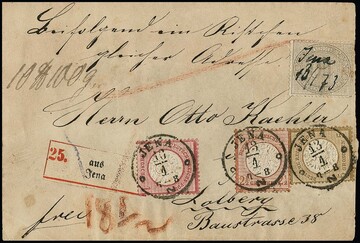 Beifolgend ein Kistchen
gleicher Adresse
Jena
13/4 73
Herrn Otto Kaehler
25.
aus
Jena
JENA
13
4
JENA
13
4
JENA
13
4
frei
Colberg
Baustrasse 38